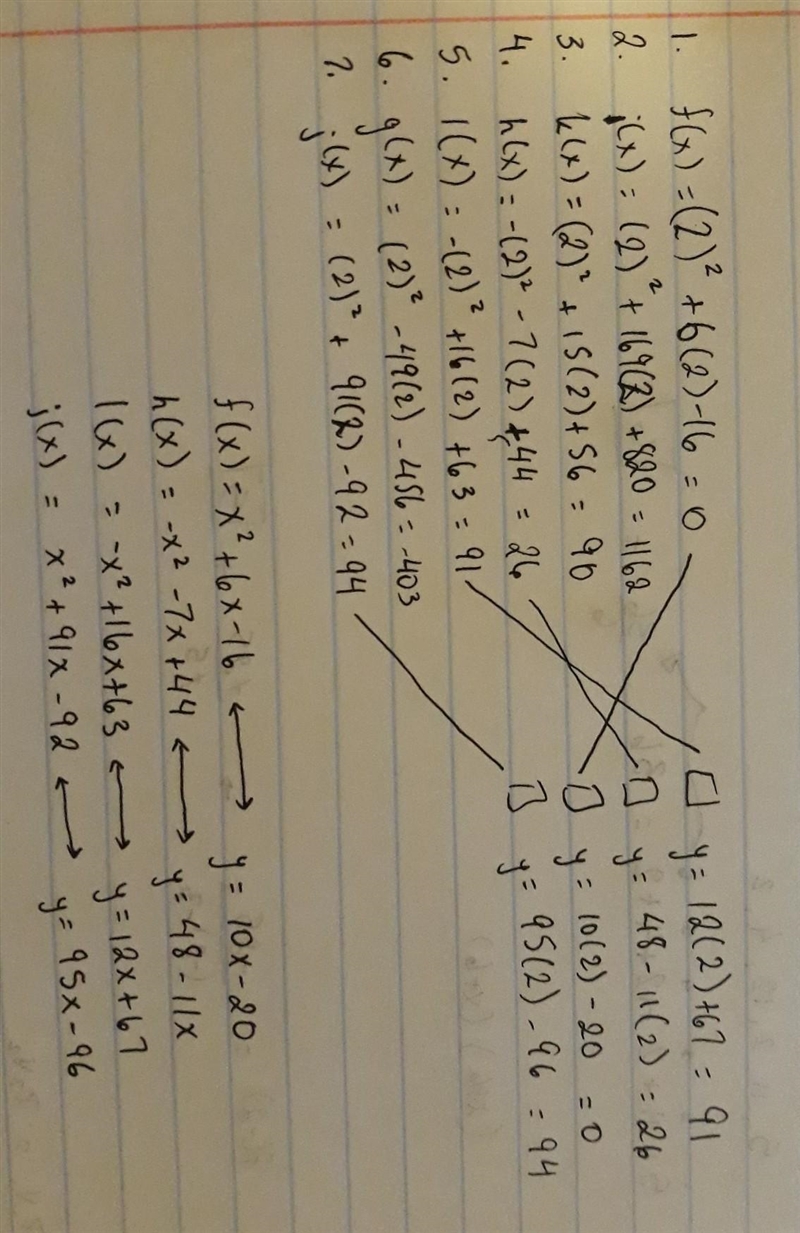 1. f(x) = (2)² + 6(2) - 16 = 0
2. i(x) = (2)² + 169(2) + 820 = 1162
3. k(x) = (2)² + 15(2) + 56 = 90
4. h(x) = -(2)² - 7(2) + 44 = 26
5. l(x) = -(2)² + 16(2) + 63 = 91
6. g(x) = (2)² - 49(2) - 456 = -403
7. j(x) = (2)² + 91(2) - 92 = 94
y = 12(2) + 67 = 91
y = 48 - 11(2) = 26
y = 10(2) - 20 = 0
y = 95(2) - 96 = 94
f(x) = x² + 6x - 16 ↔ y = 10x - 20
h(x) = -x² - 7x + 44 ↔ y = 48 - 11x
l(x) = -x² + 16x + 63 ↔ y = 12x + 67
j(x) = x² + 91x - 92 ↔ y = 95x - 96